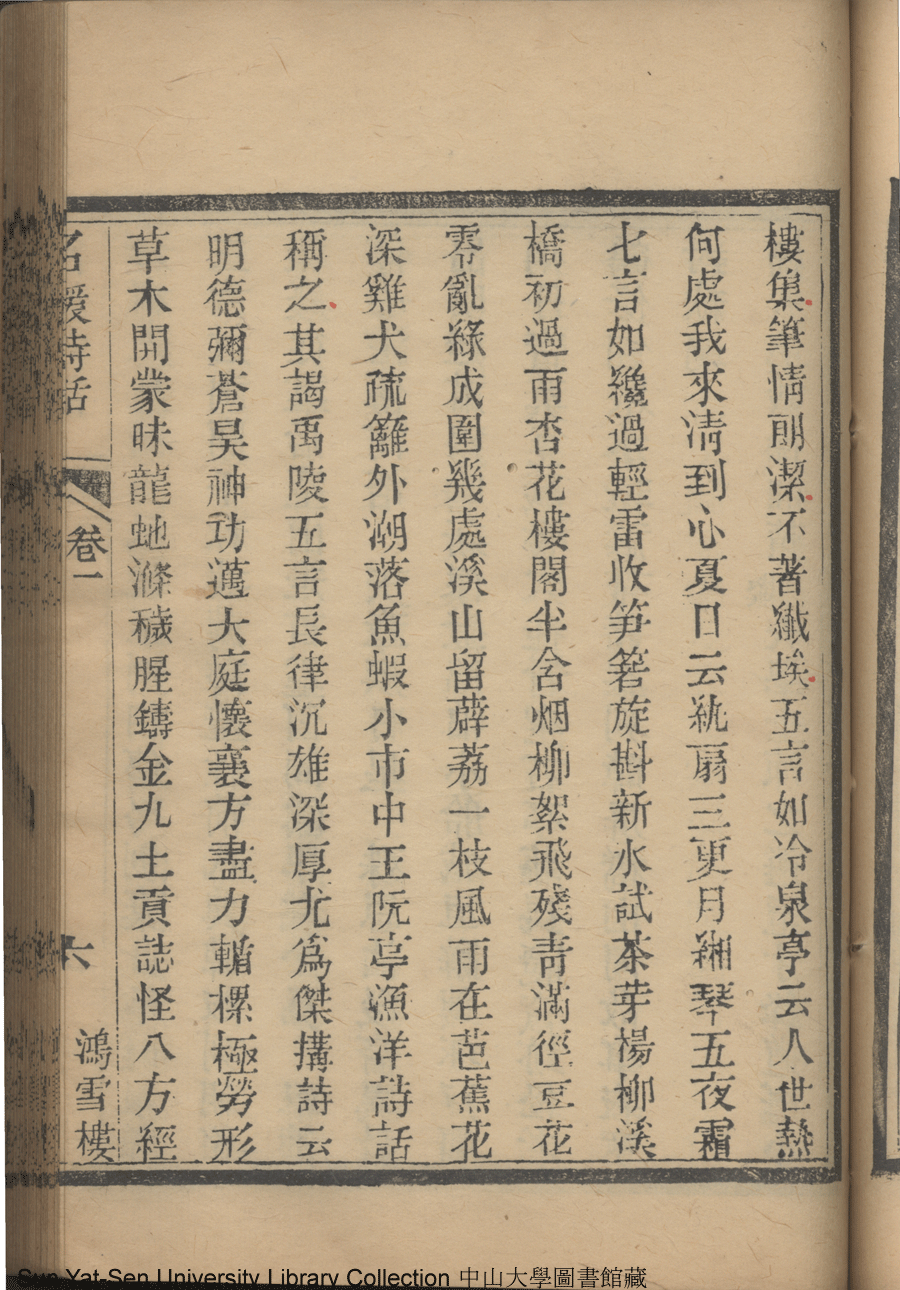 樓集筆情朗潔不著纖埃五言如冷泉亭云人世熱
何處我來清到心夏日云紈扇三更月緗琴五夜霜
七言如纔過輕雷收笋籜旋斟新水試茶芽楊柳溪
橋初過雨杏花樓閣半含烟柳絮飛殘青滿徑豆花
零亂綠成圍幾處溪山留薜荔一枝風雨在芭蕉花
深雞犬疏籬外潮落魚蝦小市中王阮亭漁洋詩話
稱之其謁禹陵五言長律沉雄深厚尤爲傑搆詩云
明德彌蒼昊神功邁大庭懷襄方盡力輴樏極勞形
草木開蒙昧龍虵滌穢腥鑄金九土貢誌怪八方經
名媛詩話 卷一 六 鴻雪樓
Sun Yat-Sen University Library Collection 中山大學圖書館藏